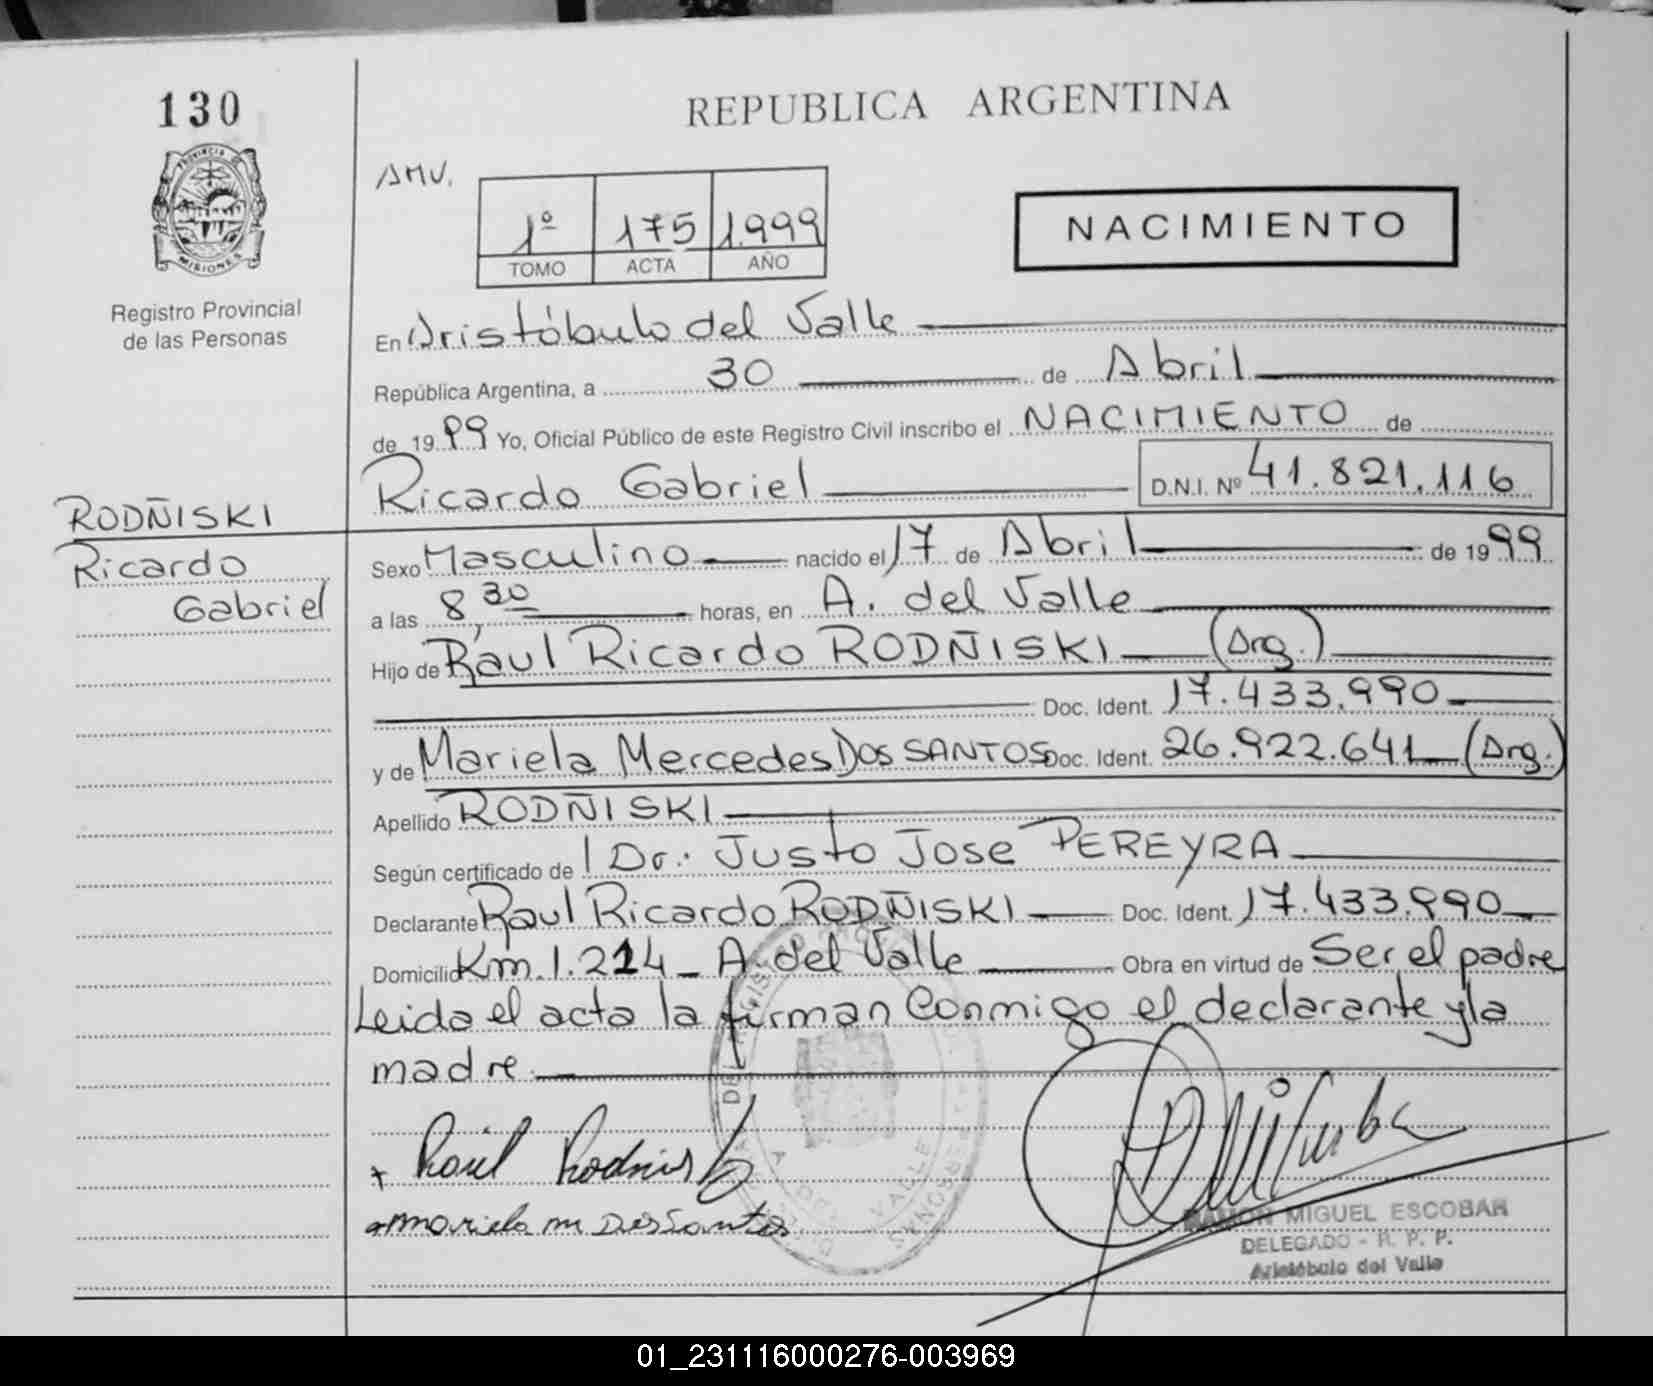 130
REPUBLICA ARGENTINA
AMV.
PROVINCIA DE
MISIONES
1º 175 1.999
TOMO ACTA AÑO
NACIMIENTO
Registro Provincial
de las Personas
En Aristóbulo del Valle
República Argentina, a 30 de Abril
de 1999 Yo, Oficial Público de este Registro Civil inscribo el NACIMIENTO de
Ricardo Gabriel D.N.I. Nº 41.821.116
RODÑISKI
Ricardo
Gabriel
Sexo Masculino nacido el 17 de Abril de 1999
a las 8,30 horas, en A. del Valle
Hijo de Raul Ricardo RODÑISKI (Arg.)
Doc. Ident. 17.433.990
y de Mariela Mercedes DOS SANTOS Doc. Ident. 26.922.641 (Arg.)
Apellido RODÑISKI
Según certificado de l Dr.: Justo Jose PEREYRA
Declarante Raul Ricardo RODÑISKI Doc. Ident. 17.433.990
Domicilio Km. 1.214 - A. del Valle Obra en virtud de Ser el padre
Leida el acta la firman Conmigo el declarante y la
madre
Raúl
Mariela M Dos Santos
A. DEL VALLE
RAMON MIGUEL ESCOBAR
DELEGADO - R. P. P.
Aristóbulo del Valle
01_231116000276-003969